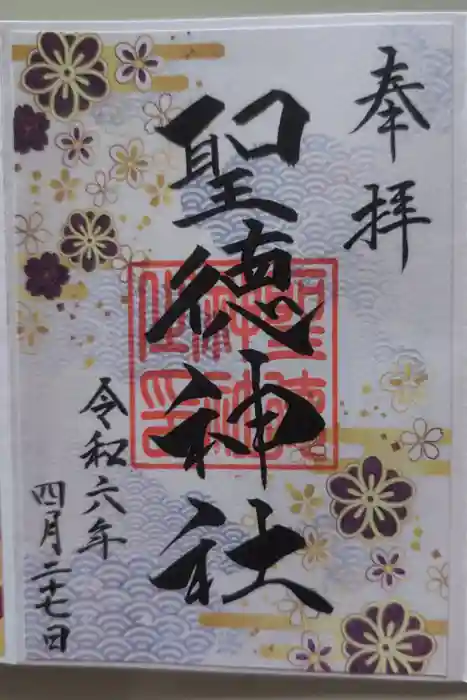 奉拝
聖徳神社
令和六年
四月二十七日